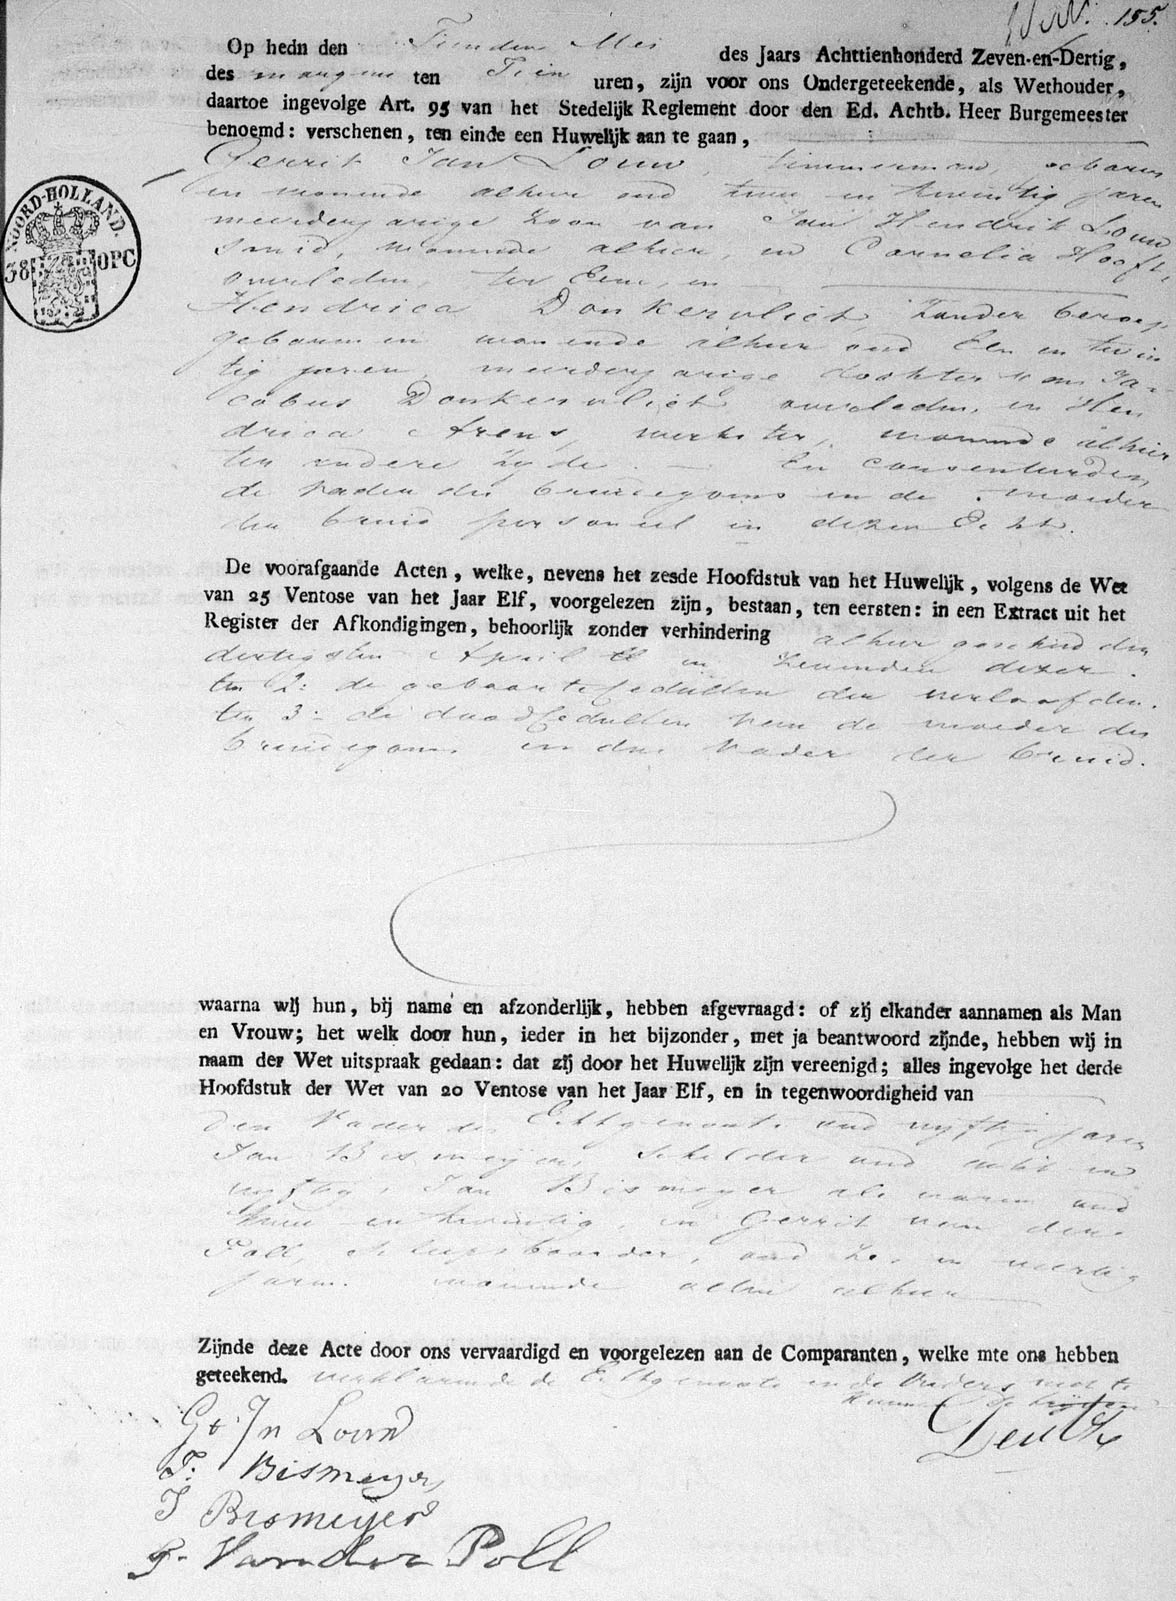 155.
Op hedn den Tienden Mei des Jaars Achttienhonderd Zeven-en-Dertig,
des morgens ten Tien uren, zijn voor ons Ondergeteekende, als Wethouder,
daartoe ingevolge Art. 95 van het Stedelijk Reglement door den Ed. Achtb. Heer Burgemeester
benoemd: verschenen, ten einde een Huwelijk aan te gaan,
Gerrit Jan Louw, timmerman, geboren
en wonende alhier oud twee en twintig jaren
meerderjarige Zoon van Jan Hendrik Louw
smid, wonende alhier, en Cornelia Hooft,
overleden, ter Eene, en
Hendrica Donkervliet, Zonder beroep
geboren en wonende alhier oud Een en twin
tig jaren, meerderjarige dochter van Ja-
cobus Donkervliet, overleden, en Hen
drica Arens, werkster, wonende alhier
ter andere zyde. — En consenteerden,
de vader des bruidegoms en de moeder
der bruid personeel in dezen Echt.
NOORD-HOLLAND.
38 OPC
De voorafgaande Acten, welke, nevens het zesde Hoofdstuk van het Huwelijk, volgens de Wet
van 25 Ventose van het Jaar Elf, voorgelezen zijn, bestaan, ten eersten: in een Extract uit het
Register der Afkondigingen, behoorlijk zonder verhindering alhier geschied den
dertigsten April ll en Zevenden dezer.
ten 2: de geboorte Cedullen der verloofden.
ten 3: de dood Cedullen van de moeder des
bruidegoms en den Vader der bruid.
waarna wij hun, bij name en afzonderlijk, hebben afgevraagd: of zij elkander aannamen als Man
en Vrouw; het welk door hun, ieder in het bijzonder, met ja beantwoord zijnde, hebben wij in
naam der Wet uitspraak gedaan: dat zij door het Huwelijk zijn vereenigd; alles ingevolge het derde
Hoofdstuk der Wet van 20 Ventose van het Jaar Elf, en in tegenwoordigheid van
den Vader des Echtgenoots oud vyftig jaren
Jan Bismeijer, Schilder oud acht en
vyftig, Jan Bismeyer als voren oud
twee en twintig, en Gerrit van der
Poll, oud Zes en veertig
jaren. wonende allen alhier
Zijnde deze Acte door ons vervaardigd en voorgelezen aan de Comparanten, welke mte ons hebben
geteekend. verklarende de Echtgenoote en de Ouders niet te
kunnen schrijven
Gt Jn Louw
J: Bismeyer
J Bismeijer
G. Van der Poll